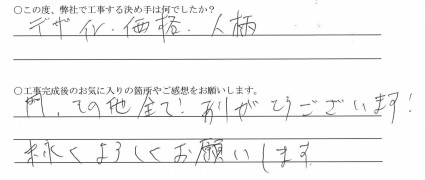 ○この度、弊社で工事する決め手は何でしたか?
デザイン・価格・人柄
○工事完成後のお気に入りの箇所やご感想をお願いします。
、その他全て!ありがとうございます!
末永くよろしくお願いします